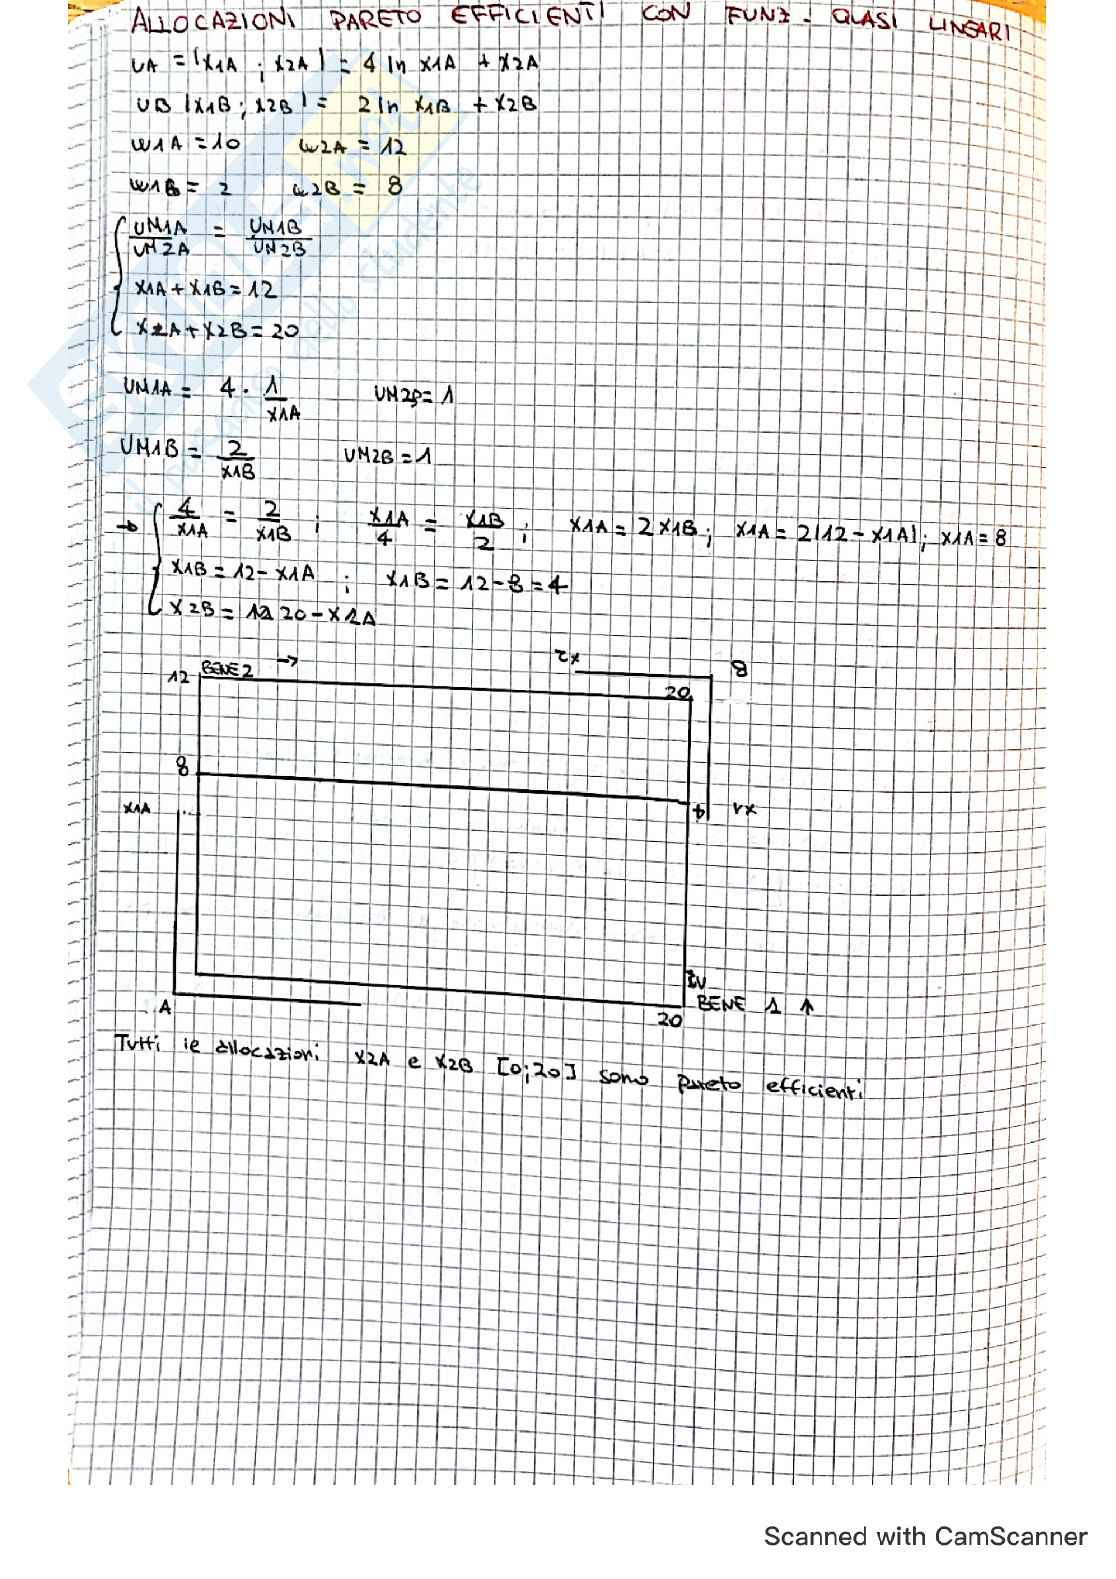 ALLOCAZIONI PARETO EFFICIENTI CON FUNZ. QUASI LINEARI
UA = (X1A ; X2A) = 4 ln X1A + X2A
UB (X1B ; X2B) = 2 ln X1B + X2B
W1A = 10 W2A = 12
W1B = 2 W2B = 8
UM1A / UM2A = UM1B / UM2B
X1A + X1B = 12
X2A + X2B = 20
UM1A = 4 · 1 / X1A UM2B = 1
UM1B = 2 / X1B UM2B = 1
→ 4 / X1A = 2 / X1B ; X1A / 4 = X1B / 2 ; X1A = 2 X1B ; X1A = 2(12 - X1A) ; X1A = 8
X1B = 12 - X1A ; X1B = 12 - 8 = 4
X2B = 20 - X2A
X2 B
12 BENE 2 →
20
8
X1A 4 X1
BENE 1 ↑
A 20
Tutti le allocazioni X2A e X2B [0;20] sono pareto efficienti
Scanned with CamScanner